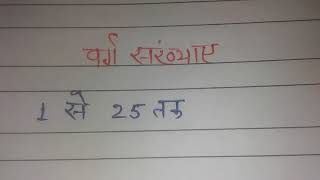 वर्ग संख्याए
1 से 25 तक